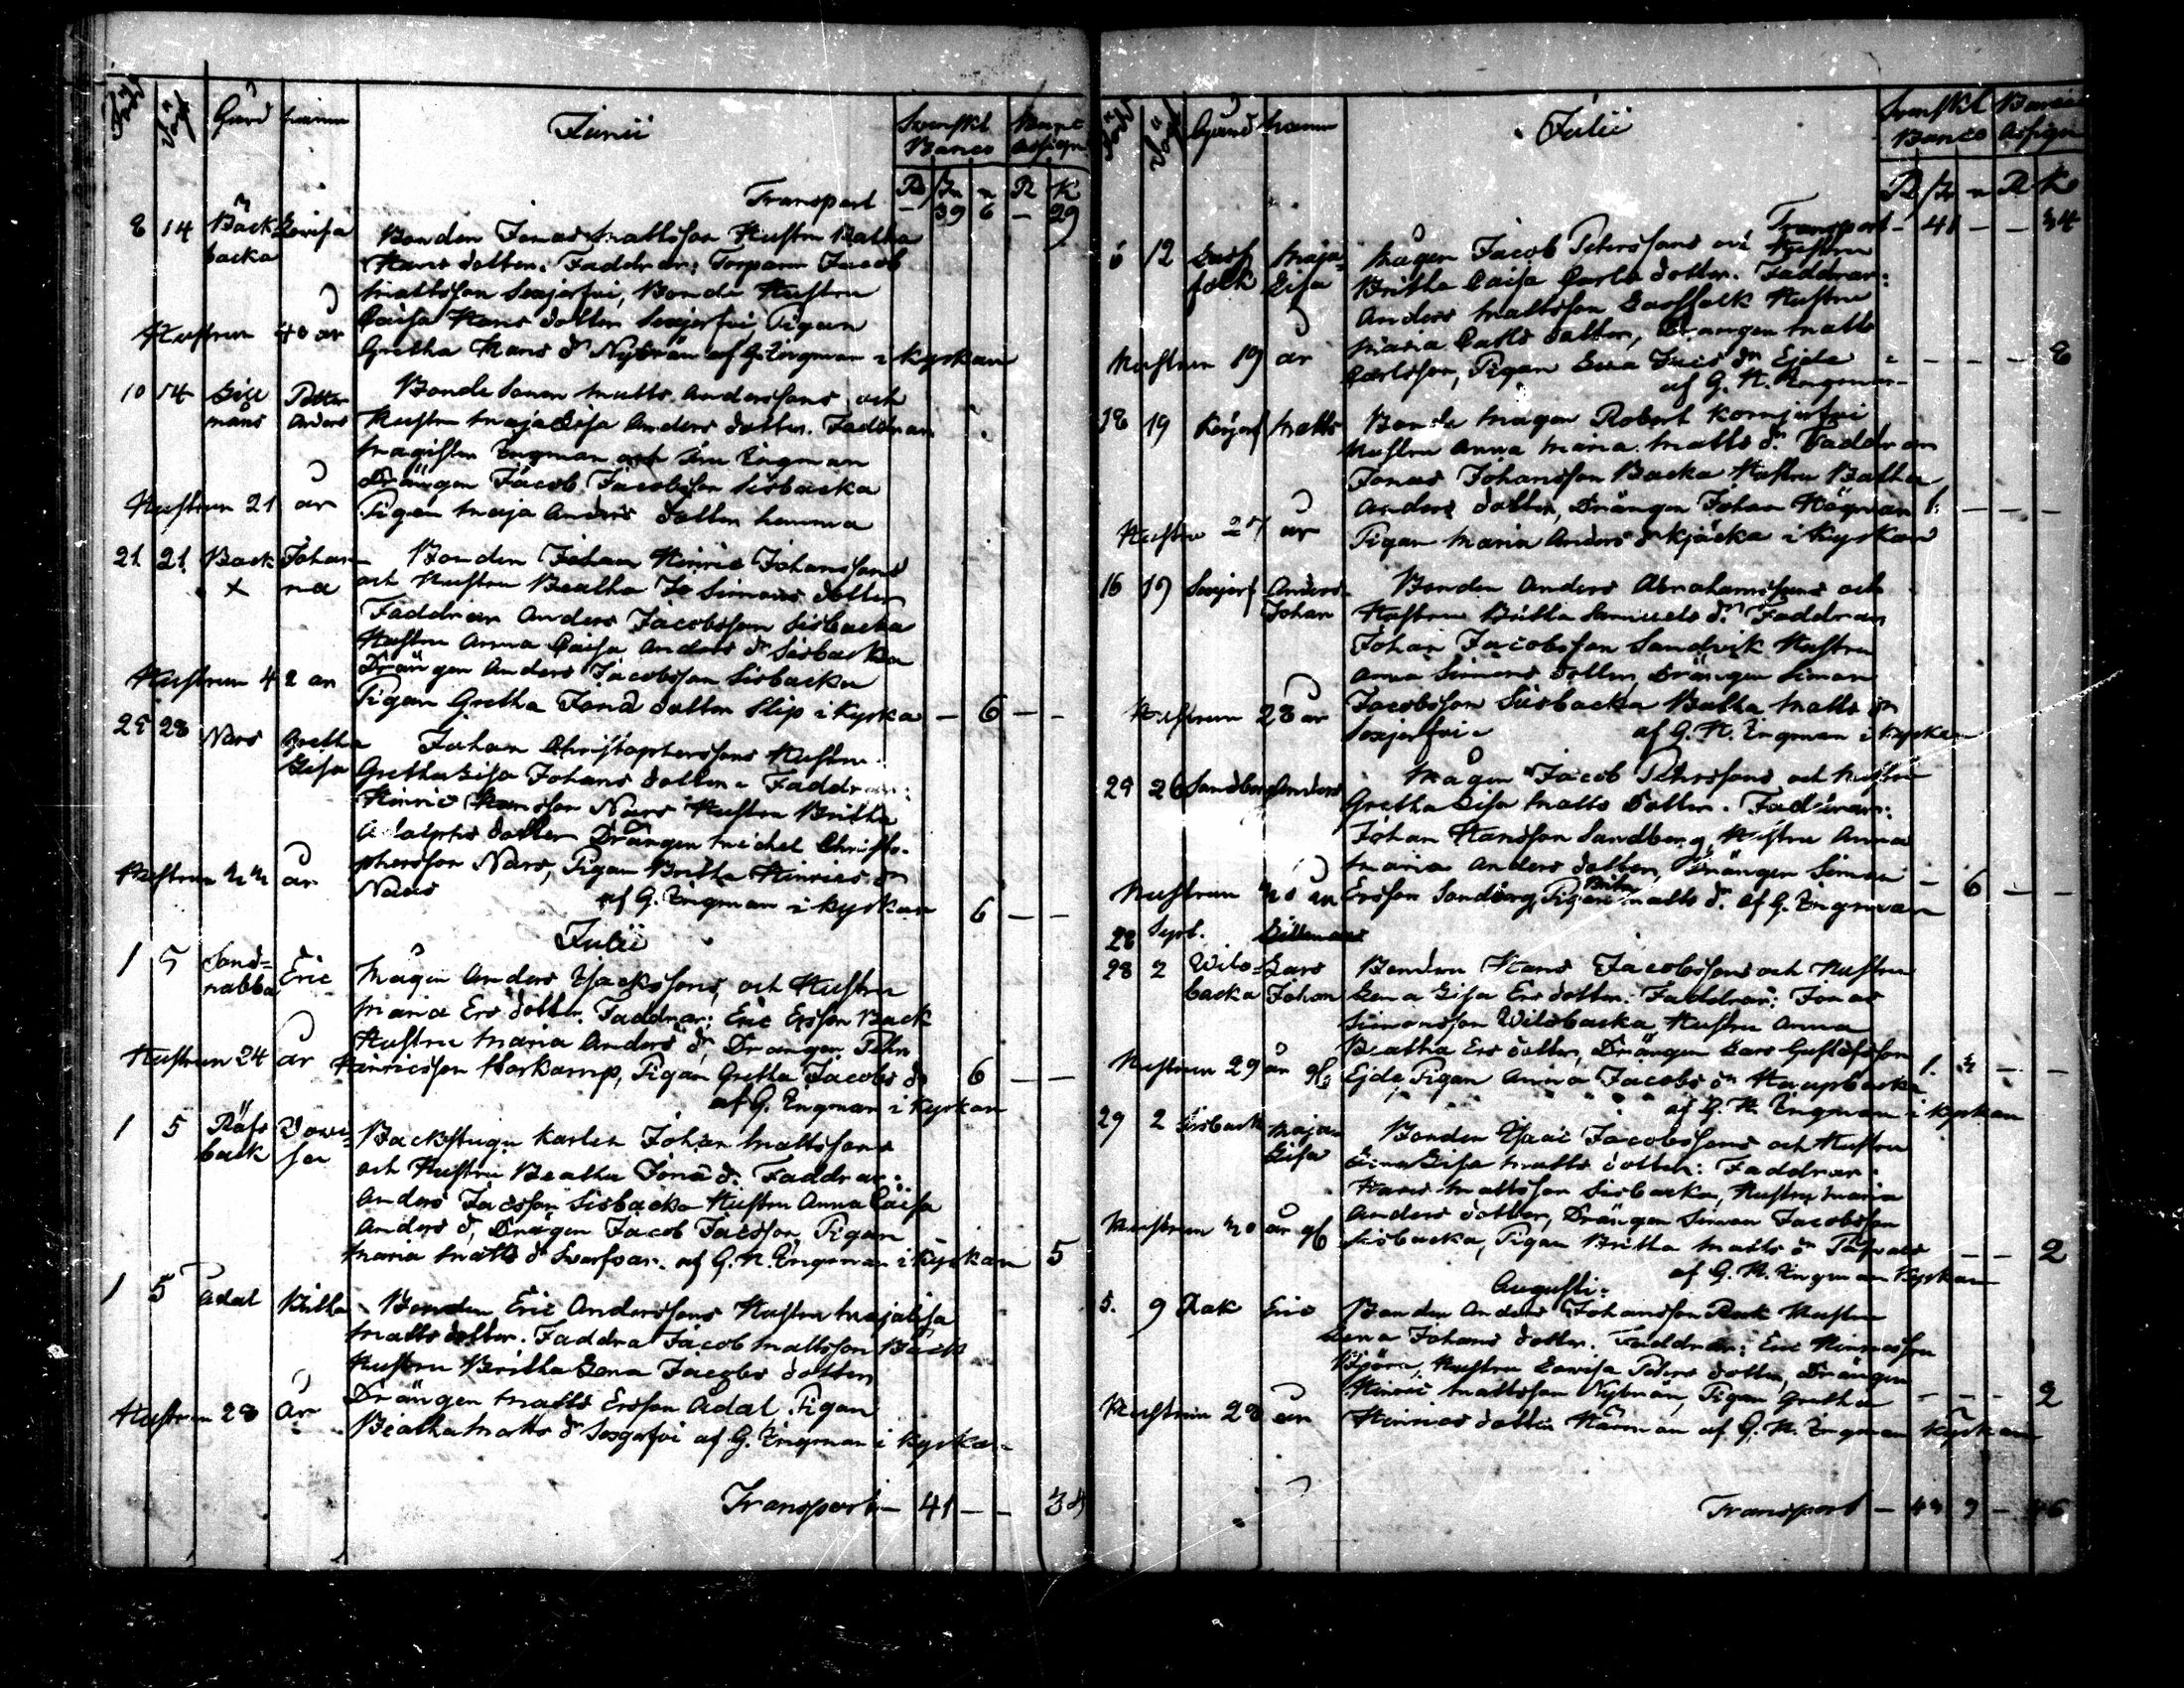 Född Döpt Gård namn Junii Swensk Rd Banco Banco assign
Transport Rd sk r R K
– 39 6 – 29
8 14 Back Lovisa Bonden Jonas Mattsson Hustru Beatha
backa Hans dotter. Faddrar: Torparen Jacob
Mattsson Soxjerfvi, Bonde Hustru
Caisa Hans dotter Soxjerfvi, Pigan
Hustrun 40 år Gretha Hans dr Nybrän af G. Engman i Kyrkan
10 14 Gill Petter Bonde Sonen Matts Anderssons och
mans Anders Hustru Maja Lisa Anders dotter. Faddrar
Magister Engman och Fru Engman
Drängen Jacob Jacobsson Sisbacka
Hustrun 21 år Pigan Maja Anders dotter hemma
21 21 Back Johan Bonden Johan Hinric Johanssons
x na och Hustru Beatha Simons dotter
Faddrar Anders Jacobsson Sisbacka
Hustru Anna Caisa Anders dr Sisbacka
Hustrun 42 år Drängen Anders Jacobsson Sisbacka
Pigan Gretha Jonä dotter Slip i Kyrka – 6 – –
25 28 Nars Gretha Johan Christopherssons Hustru
Lisa Gretha Lisa Johans dotter. Faddrar:
Hinric Hansson Nars Hustru Britha
Adolphs dotter Drängen Michel Christo-
Hustrun år phersson Nars, Pigan Britha Hinrics dr
Nars af G. Engman i kyrkan 6 – –
Julii
1 5 Sand= Eric Mågen Anders Isackssons, och Hustru
nabba Maria Ers dotter. Faddrar: Eric Ersson Back
Hustru Maria Anders dr, Drängen Pehr
Hustrun 24 år Hinricsson Storkamp, Pigan Gretha Jacobs dr 6 – –
af G. Engman i Kyrkan
1 5 Räfs Lovi- Backstugu karlen Johan Mattssons
back sa och Hustru Beatha Jonä d. Faddrar:
Anders Jacsson Sisbacka Hustru Anna Caisa
Anders d, Drängen Jacob Jacsson, Pigan
Maria Matts dr Svarfvar. af G. N. Engman i Kyrkan 5
1 5 Ådal Britha Bonden Eric Anderssons Hustru Maja Lisa
Matts dotter. Faddra Jacob Mattsson Back
Hustru Britha Lena Jacobs dotter
Drängen Matts Ersson Ådal Pigan
Hustrun 28 år Beatha Matts dr Soxjerfvi af G. Engman i kyrkan
Transport – 41 – – 34
Född Döpt Gård namn Julii Swensk Rd Banco Banco Assign
Rd sk r R K
Transport – 41 – – 34
6 12 Gass Maja Mågen Jacob Peterssons och Hustru
folk Lisa Britha Caisa Carls dotter. Faddrar:
Anders Mattsson Gassfolk Hustru
Maria Carls dotter, Drängen Matts
Hustrun 19 år Carlsson, Pigan Ewa Jacs dr Ejde – – – –
af G. N. Engman
18 19 Körjerf Matts Bonde Mågen Robert Kornjerfvi
Hustru Anna Maria Matts dr Faddrar
Jonas Johansson Backa Hustru Beatha
Anders dotter, Drängen Johan Högman
Hustru 27 år Pigan Maria Anders dr Kjäcka i Kyrkan
16 19 Soxjerf Anders Bonden Anders Abrahamssons och
Johan Hustru Britha Samuels dr. Faddrar
Johan Jacobsson Sandvik Hustru
Anna Simons dotter Drängen Simon
Hustrun 28 år Jacobsson Sisbacka Beatha Matts dr
Soxjerfvi af G. N. Engman i Kyrkan
24 26 Sandberg Anders Mågen Jacob Pehrssons och Hustru
Gretha Lisa Matts dotter. Faddrar:
Johan Hansson Sandberg, Hustru Anna
Maria Anders dotter, Drängen Simon
Hustrun år Ersson Sandberg, Pigan Brita Matts dr. af G. Engman – 6 – –
28 Sept. Gillmans
28 2 Wils- Lars Bonden Hans Jacobssons och Hustru
backa Johan Lena Lisa Ers dotter. Faddrar: Jonas
Simonsson Wilsbacka Hustru Anna
Beatha Ers dotter, Drängen Lars Gustafsson
Hustrun 29 år Ejde, Pigan Anna Jacobs dr
af G. N. Engman i Kyrkan
29 2 Sisback Maja Bonden Isaac Jacobssons och Hustru
Lisa Lena Lisa Matts dotter: Faddrar:
Hans Mattsson Sisbacka, Hustru Maria
Anders dotter, Drängen Simon Jacobsson
Hustrun år Sisbacka, Pigan Britha Matts dr – – 2
af G. N. Engman Kyrkan
Augusti:
5. 9 Rak Eric Bonden Anders Johansson Rak Hustru
Lena Johans dotter. Faddrar: Eric Hinricsson
Björn, Hustru Lovisa Peters dotter, Drängen
Hinric Mattsson Nybrän, Pigan Gretha – – – 2
Hustrun 28 år Hinrics dotter Härman af G. N. Engman Kyrkan
Transport – 43 9 – 46